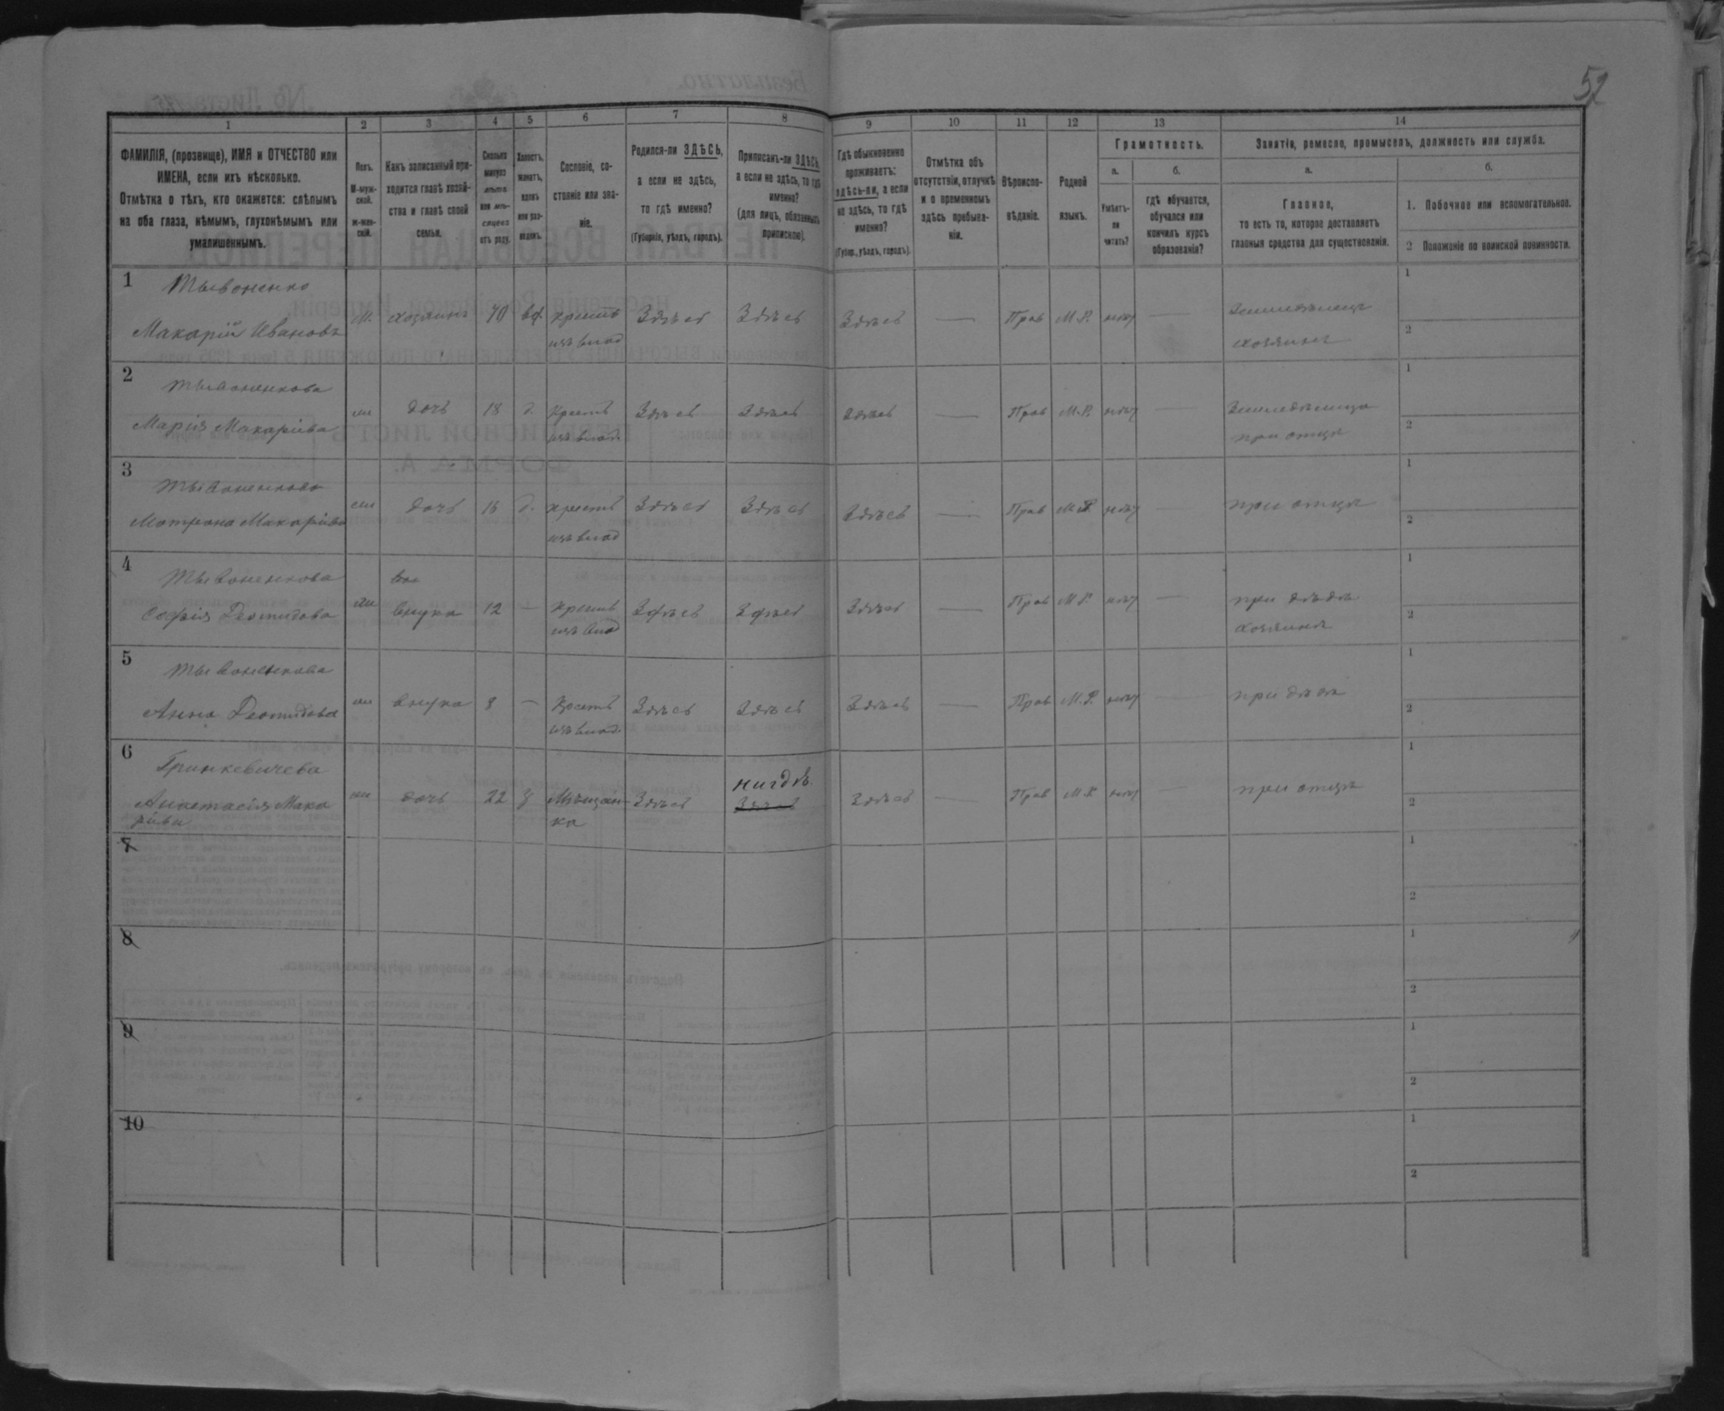 52
1 2 3 4 5 6 7 8 9 10 11 12 13 14
ФАМИЛІЯ, (прозвище), ИМЯ и ОТЧЕСТВО или
ИМЕНА, если ихъ нѣсколько.
Отмѣтка о тѣхъ, кто окажется: слѣпымъ
на оба глаза, нѣмымъ, глухонѣмымъ или
умалишеннымъ.
Полъ.
М-муж-
ской.
Ж-жен-
скій.
Какъ записанный при-
ходится главѣ хозяй-
ства и главѣ своей
семьи.
Сколько
минуло
лѣтъ
или мѣ-
сяцевъ
отъ роду.
Холостъ,
женатъ,
вдовъ
или раз-
веденъ.
Сословіе, со-
стояніе или зва-
ніе.
Родился-ли ЗДѢСЬ,
а если не здѣсь,
то гдѣ именно?
(Губернія, уѣздъ, городъ).
Приписанъ-ли ЗДѢСЬ,
а если не здѣсь, то гдѣ
именно?
(для лицъ, обязанныхъ
припискою).
Гдѣ обыкновенно
проживаетъ:
здѣсь-ли, а если
не здѣсь, то гдѣ
именно?
(Губер., уѣздъ, городъ).
Отмѣтка объ
отсутствіи, отлучкѣ
и о временномъ
здѣсь пребыва-
ніи.
Вѣроиспо-
вѣданіе.
Родной
языкъ.
Грамотность.
а.
Умѣетъ-
ли
читать?
б.
гдѣ обучается,
обучался или
кончилъ курсъ
образованія?
Занятія, ремесло, промыселъ, должность или служба.
а.
Главное,
то есть то, которое доставляетъ
главныя средства для существованія.
б.
1. Побочное или вспомогательное.
2 Положеніе по воинской повинности.
1
Макарій Ивановъ
М. хозяинъ 70 вд крестъ Здѣсь Здѣсь Здѣсь — Прав М.Р. нѣтъ — Земледѣлецъ
изъ влад хозяинъ
1
2
2
Марія Макаріева
дочь 18 д. крестъ Здѣсь Здѣсь Здѣсь — Прав М.Р. нѣтъ —
изъ влад при отцѣ
1
2
3
Матрона Макаріева
дочь д. крестъ Здѣсь Здѣсь Здѣсь — Прав М.Р. нѣтъ — при отцѣ
изъ влад
1
2
4
Софія
внука 12 — крестъ Здѣсь Здѣсь Здѣсь — Прав М.Р. нѣтъ — при дѣдѣ
изъ влад хозяинѣ
1
2
5
Анна
внука 8 — Крестъ Здѣсь Здѣсь Здѣсь — Прав М.Р. нѣтъ — при дѣдѣ
изъ влад
1
2
6
Гринкевичева нигдѣ
Анастасія Мака
ріева
дочь 22 Мѣщан Здѣсь Здѣсь Здѣсь — Прав М.Р. нѣтъ — при отцѣ
ка
1
2
7
1
2
8
1
2
9
1
2
10
1
2